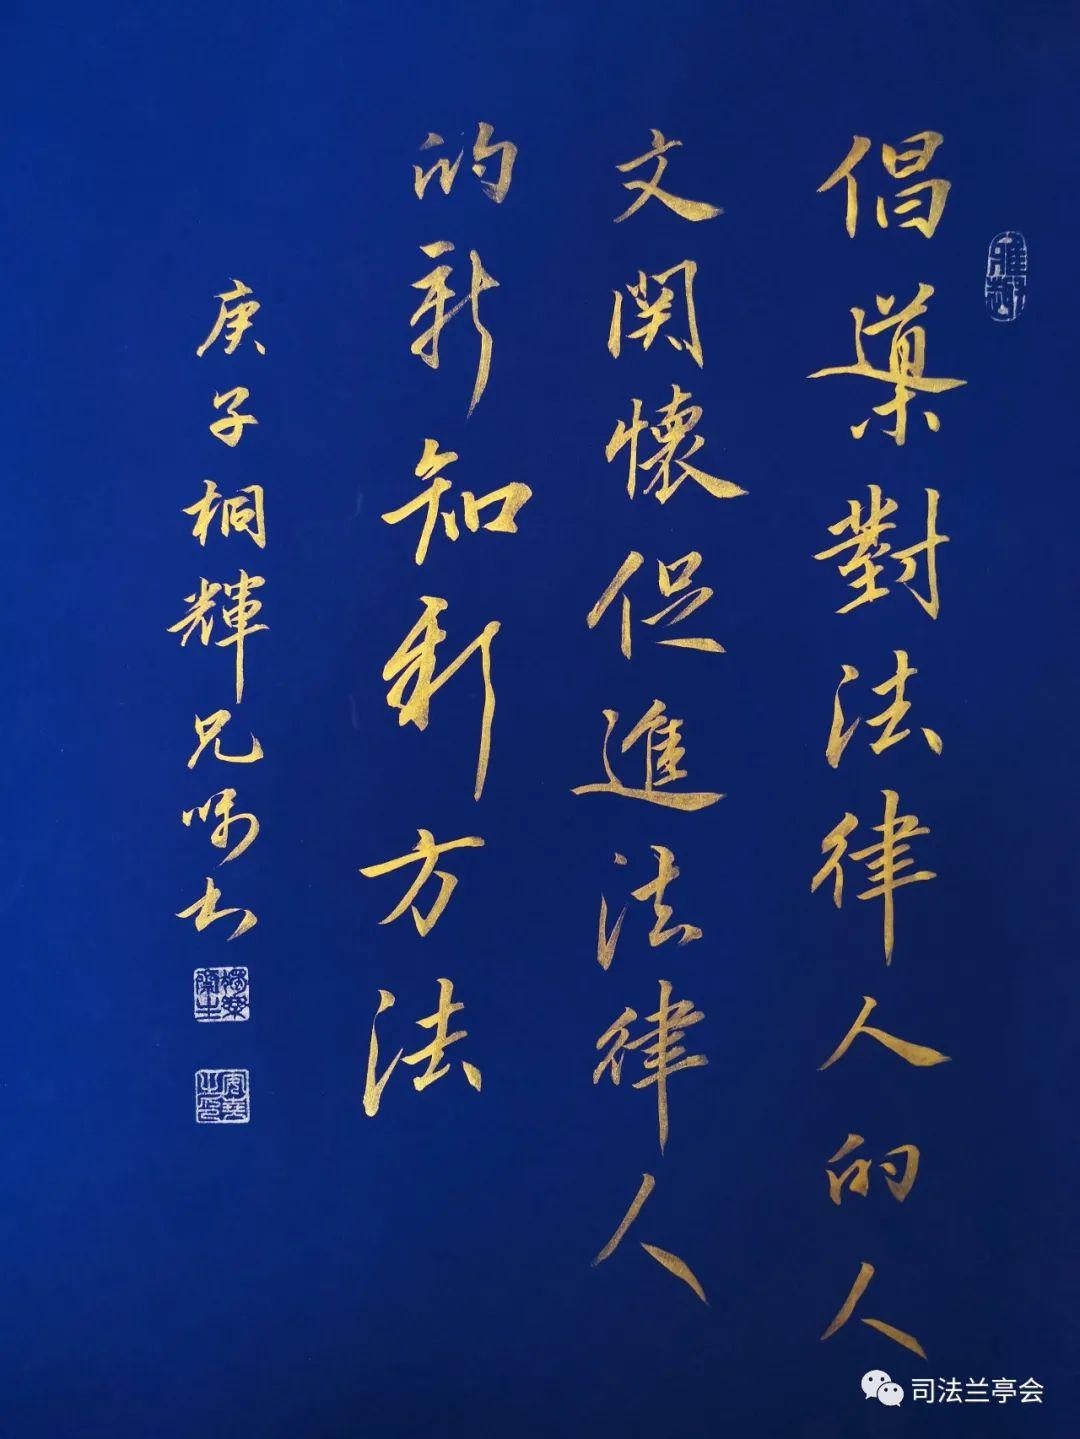 倡導對法律人的人
文関懷促進法律人
的新知新方法
庚子桐輝兄嘱书
司法兰亭会